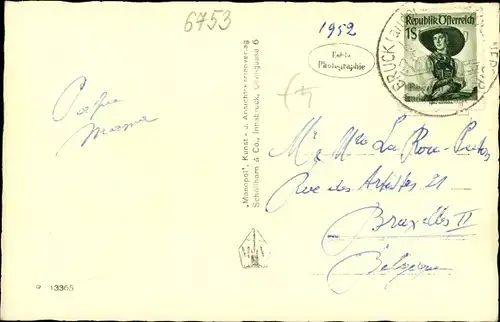 6753
1952
Echte
Photographie
Republik Österreich
1S
BRUCK
Papa
Mama
"Monopol", Kunst- u. Ansichtskartenverlag
Schöllhorn & Co., Innsbruck,
Mr Mme La Rou-
Rue des Artistes 21
Bruxelles II
Belgique
13365